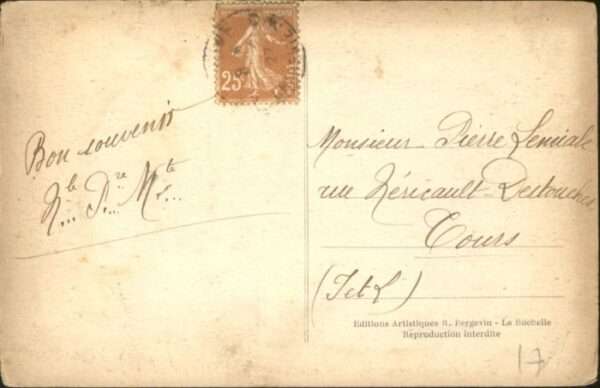 25
Bon souvenir
Monsieur Pierre
rue Néricault-Destouches
Tours
(I et L)
Editions Artistiques R. Bergevin - La Rochelle
Reproduction interdite
17